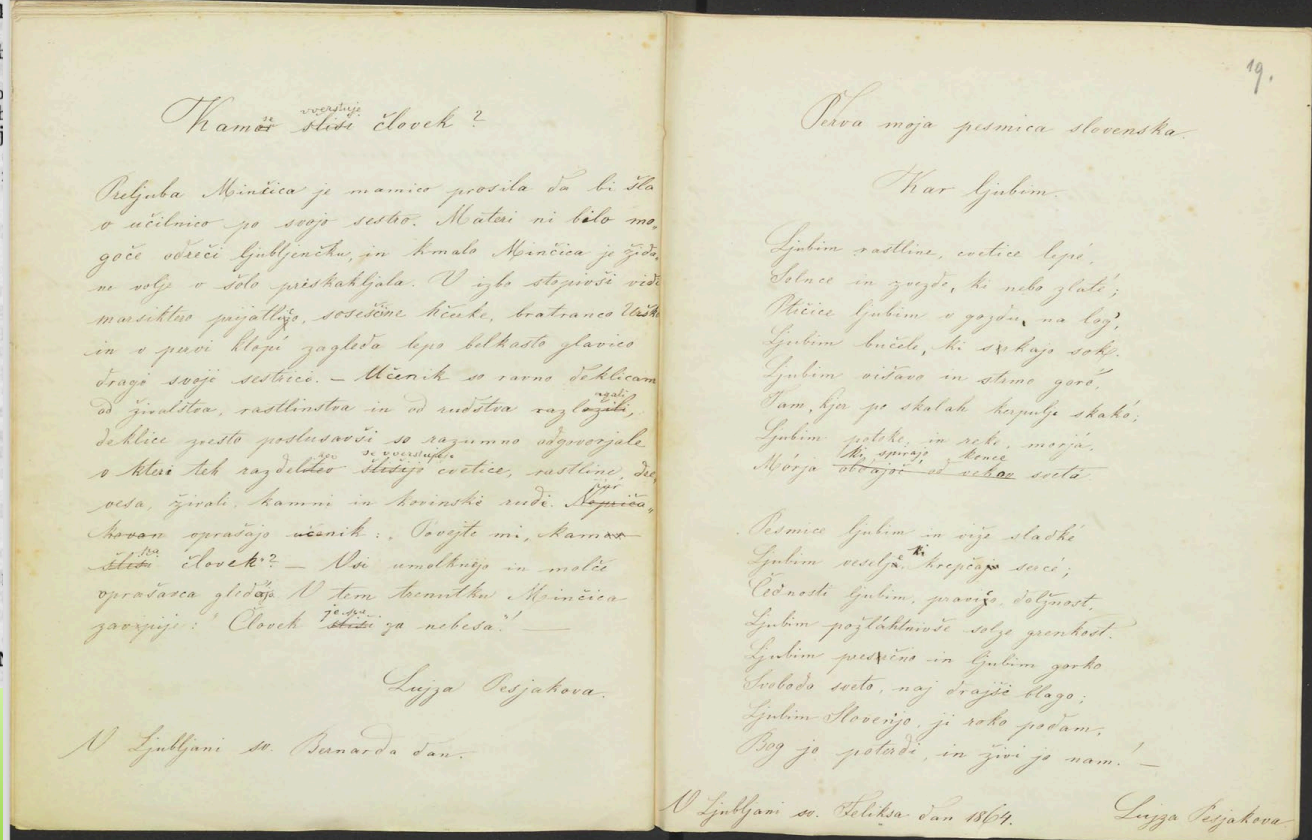 Kamor se sliši vverstuje človek?
Preljuba Minčica je mamico prosila da bi šla
v učilnico po svojo sestro. Materi ni bilo mo„
goče odreči ljubljenčku, in kmalo Minčica je žida„
ne volje v šolo priskakljala. V izbo stopivši vidi
marsiktero prijatlijo, sosešine hčerke, bratranco Urško
in v pervi klopi zagleda lepo belkasto glavico
drage svoje sestrice. — Učenik so ravno deklicam
od živalstva, rastlinstva in od rudstva razlagali,
deklice zvesto poslušavši so razumno odgovorjale
v kteri teh razdelitev slišijo se vverstujejo cvetice, rastline, dre„
vesa, živali, kamni in kovinske rude. Nepriča„
kovan oprašajo učenik: „Povejte mi, kamor
sliši spa človek?" — Vsi umolknejo in molče
oprašavca gledajo. V tem trenutku Minčica
zavpije: „Človek sliši je spa za nebesa!" —
Lujza Pesjakova.
V Ljubljani sv. Bernarda dan.
19.
Perva moja pesmica slovenska.
Kar ljubim.
Ljubim rastline, cvetice lepé,
Solnce in zvezde, ki nebo zlaté;
Ptičice ljubim v gozdu, na log',
Ljubim bučele, ki srkajo sok.
Ljubim višavo in strme goré,
Tam, kjer po skalah kerpulje skaké;
Ljubim potoke, in reke, morjá,
Mórja obdajoč od vekov ki spirajo konce sveta
Pesmice ljubim in viže sladké
Ljubim veselje, ki krepčajo sercé;
Čednosti ljubim, pravico, dolžnost,
Ljubim požláhtnivše solze grenkost.
Ljubim presrčno in ljubim gorko
Svobodo sveto, naj dražje blago;
Ljubim Slovenjo, ji roko podam,
Bog jo poterdi, in živi jo nam! —
V Ljubljani sv. Feliksa dan 1864.
Lujza Pesjakova